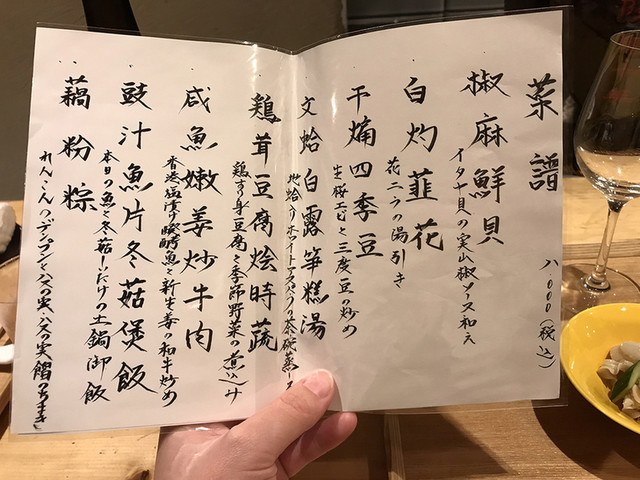 菜譜 八、000(税込)
椒麻鮮貝
イタヤ貝の実山椒ソース和え
白灼韮花
花ニラの湯引き
干煸四季豆
生桜エビと三度豆の炒め
文蛤白露筍糕湯
地蛤入りホワイトアスパラの茶碗蒸スープ
鶏茸豆腐烩時蔬
鶏すり身豆腐と季節野菜の煮込み
咸魚嫩姜炒牛肉
香港塩漬け醗酵魚と新生姜の和牛炒め
豉汁魚片冬菇煲飯
本日の魚と冬菇しいたけの土鍋御飯
藕粉粽
れんこんのデンプン、ハスの実、ハスの実餡のちまき